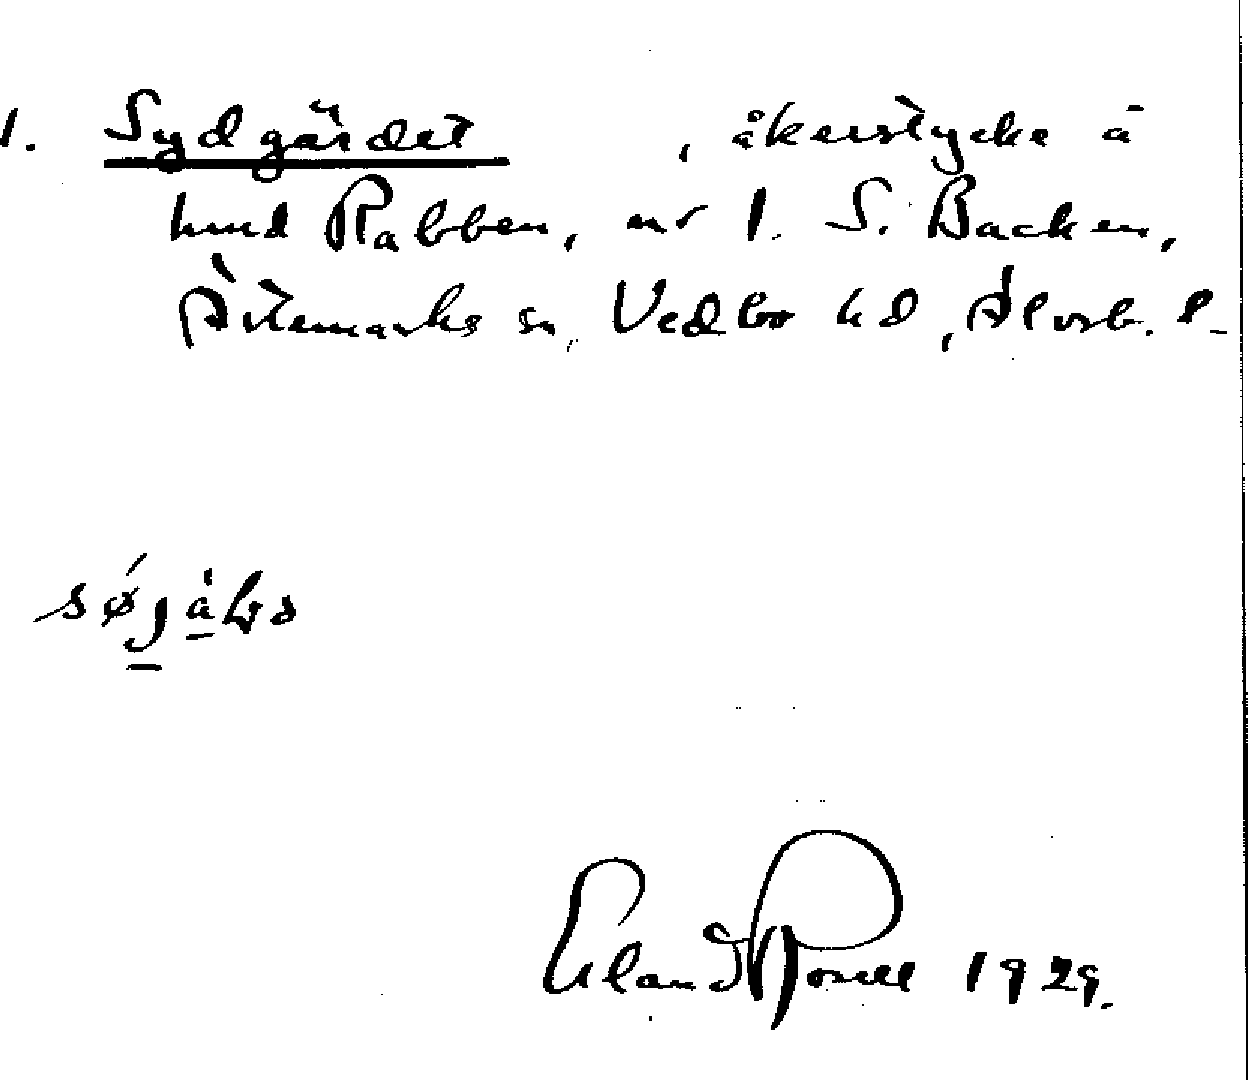 1. Sydgärdet , åkerstycke å
hmd Rabben, nr 1. S. Backen,
Ärtemarks sn, Vedbo hd, Älvsb. l.
Erland Rosell 1929.